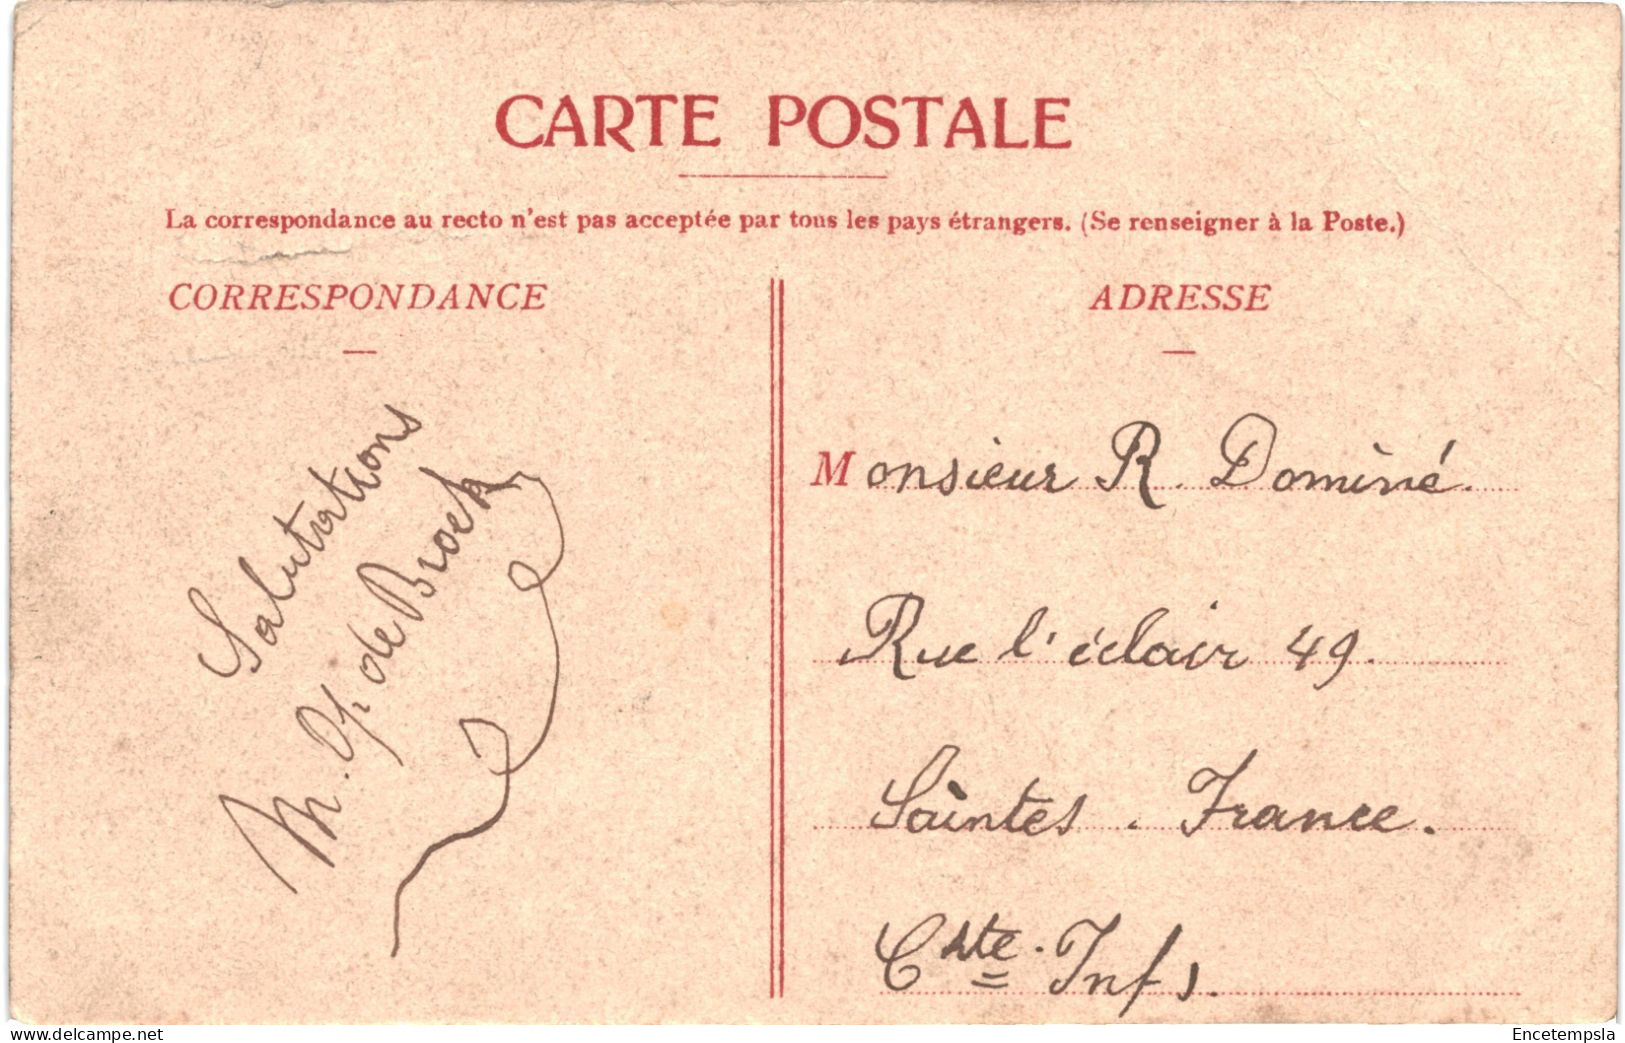 CARTE POSTALE
La correspondance au recto n'est pas acceptée par tous les pays étrangers. (Se renseigner à la Poste.)
CORRESPONDANCE
Salutations
M. Op de Broek
ADRESSE
Monsieur R. Dominé.
Rue l'éclair 49.
Saintes. France.
Cte. Inf
delcampe.net
Encetempsla